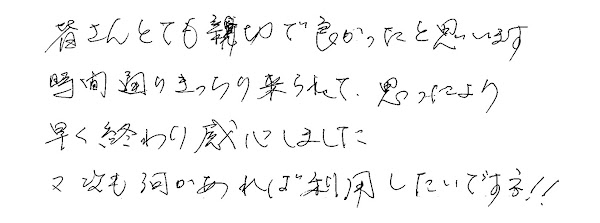 皆さんとても親切で良かったと思います
時間通りきっちり来られて、思ったより
早く終わり感心しました
又次も何かあれば利用したいですネ!!